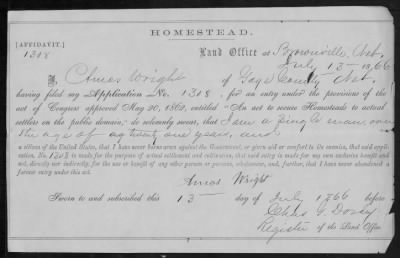 HOMESTEAD.
[AFFIDAVIT.]
1318
Land Office at Brownville, Neb.
July 13 1866
I, Amos Wright of Gage County Neb.
having filed my Application No. 1318, for an entry under the provisions of the
act of Congress approved May 20, 1862, entitled "An act to secure Homesteads to actual
settlers on the public domain," do solemnly swear, that I am a single man over
the age of twenty one years, and
a citizen of the United States, that I have never borne arms against the Government, or given aid or comfort to its enemies, that said appli-
cation, No. 1318 is made for the purpose of actual settlement and cultivation, that said entry is made for my own exclusive benefit and
not, directly nor indirectly, for the use or benefit of any other person or persons, whomsoever, and, further, that I have never abandoned a
former entry under this act.
Amos Wright
Sworn to and subscribed this 13 day of July 1866 before
Chas G. Dorsey
Register of the Land Office.